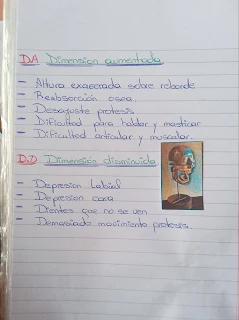 D.A Dimension aumentada
- Altura exagerada sobre reborde
- Reabsorción osea.
- Desajuste protesis
- Dificultad para hablar y masticar
- Dificultad articular y muscular.
D.D Dimensión disminuida
- Depresion Labial
- Depresion cara
- Dientes que no se ven
- Demasiado movimiento protesis.